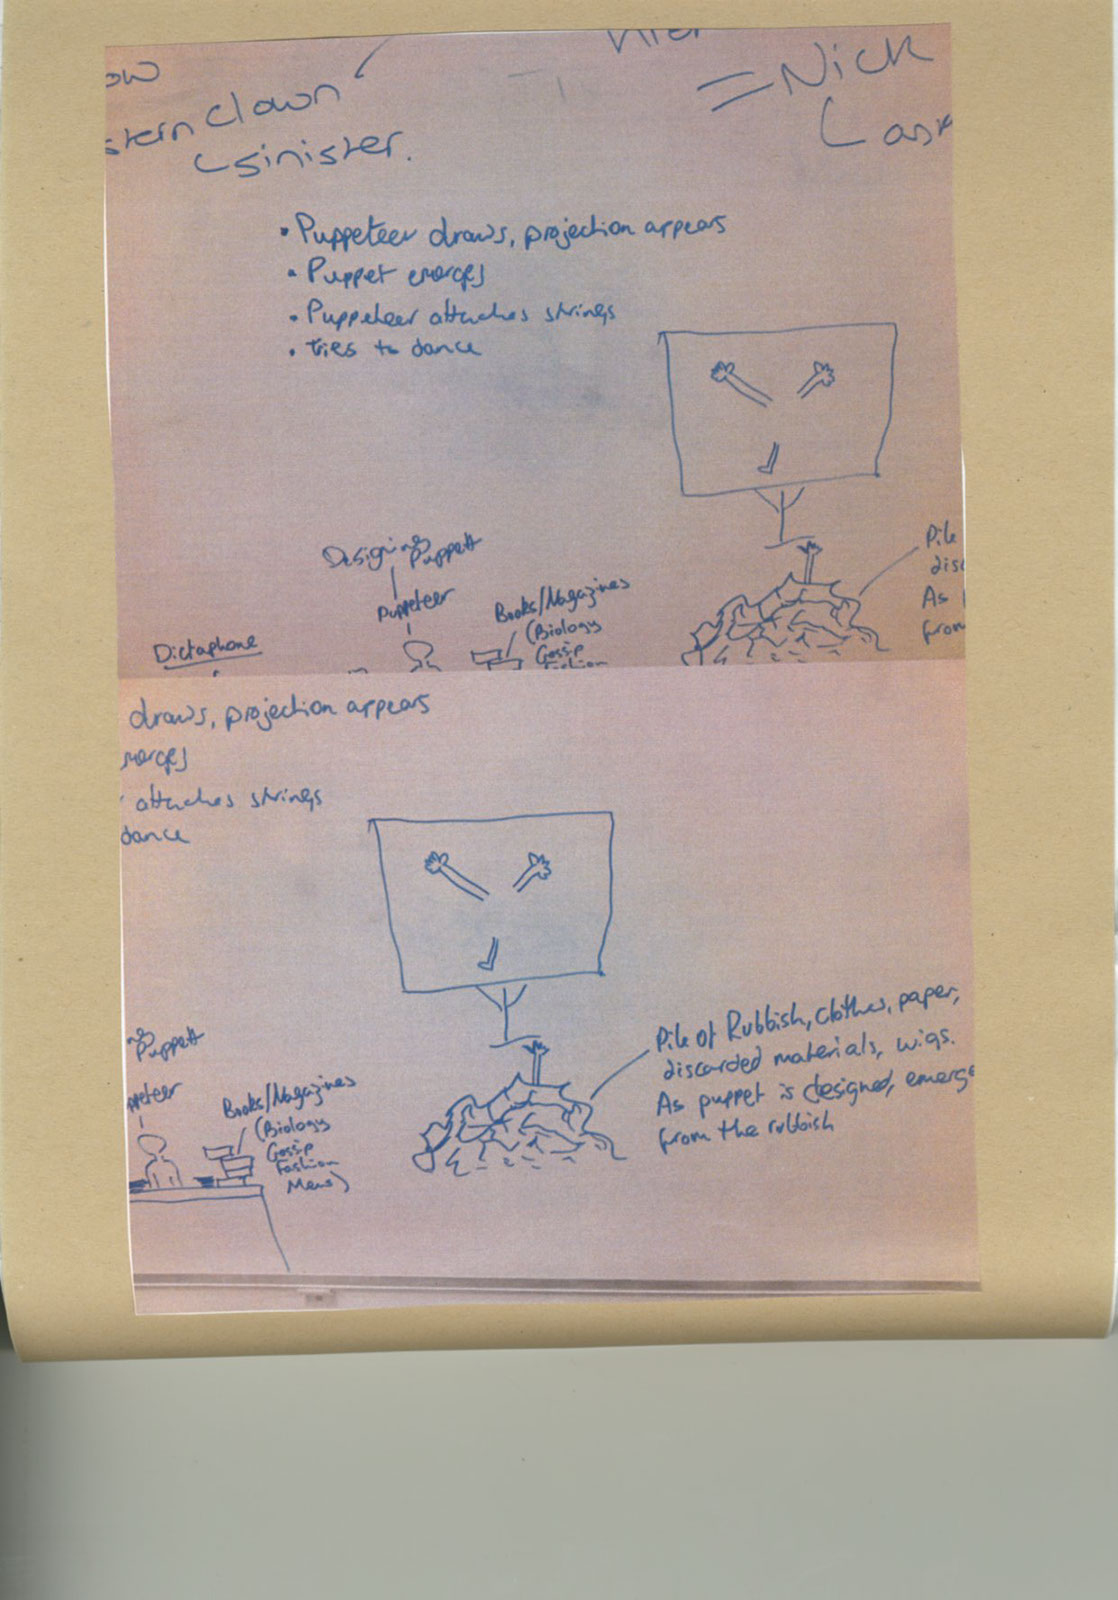 ow
stern clown
sinister.
= Nick
Lask
• Puppeteer draws, projection appears
• Puppet emerges
• Puppeteer attaches strings
• tries to dance
Designing
Puppett
Puppeteer
Books/Magazines
(Biology
Gossip
Fashion
Dictaphone
Pile
disc
As
from
draws, projection appears
merges
attaches strings
dance
ng
Puppett
ppeteer
Books/Magazines
(Biology
Gossip
Fashion
Mens)
Pile of Rubbish, clothes, paper,
discarded materials, wigs.
As puppet is designed, emerge
from the rubbish